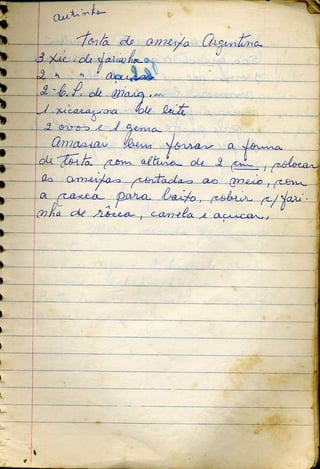 Torta de ameixa Argentina
3 xic. de farinha
2 " " açucar
2 - C. S. de marg.
1 xicarazina de leite
2 ovos e 1 gema
Amassar bem forrar a forma
de torta com altura de 2 cm, colocar
as ameixas cortadas ao meio, com
a casca para baixo, cobrir c/ fari-
nha de rosca, canela e açucar.